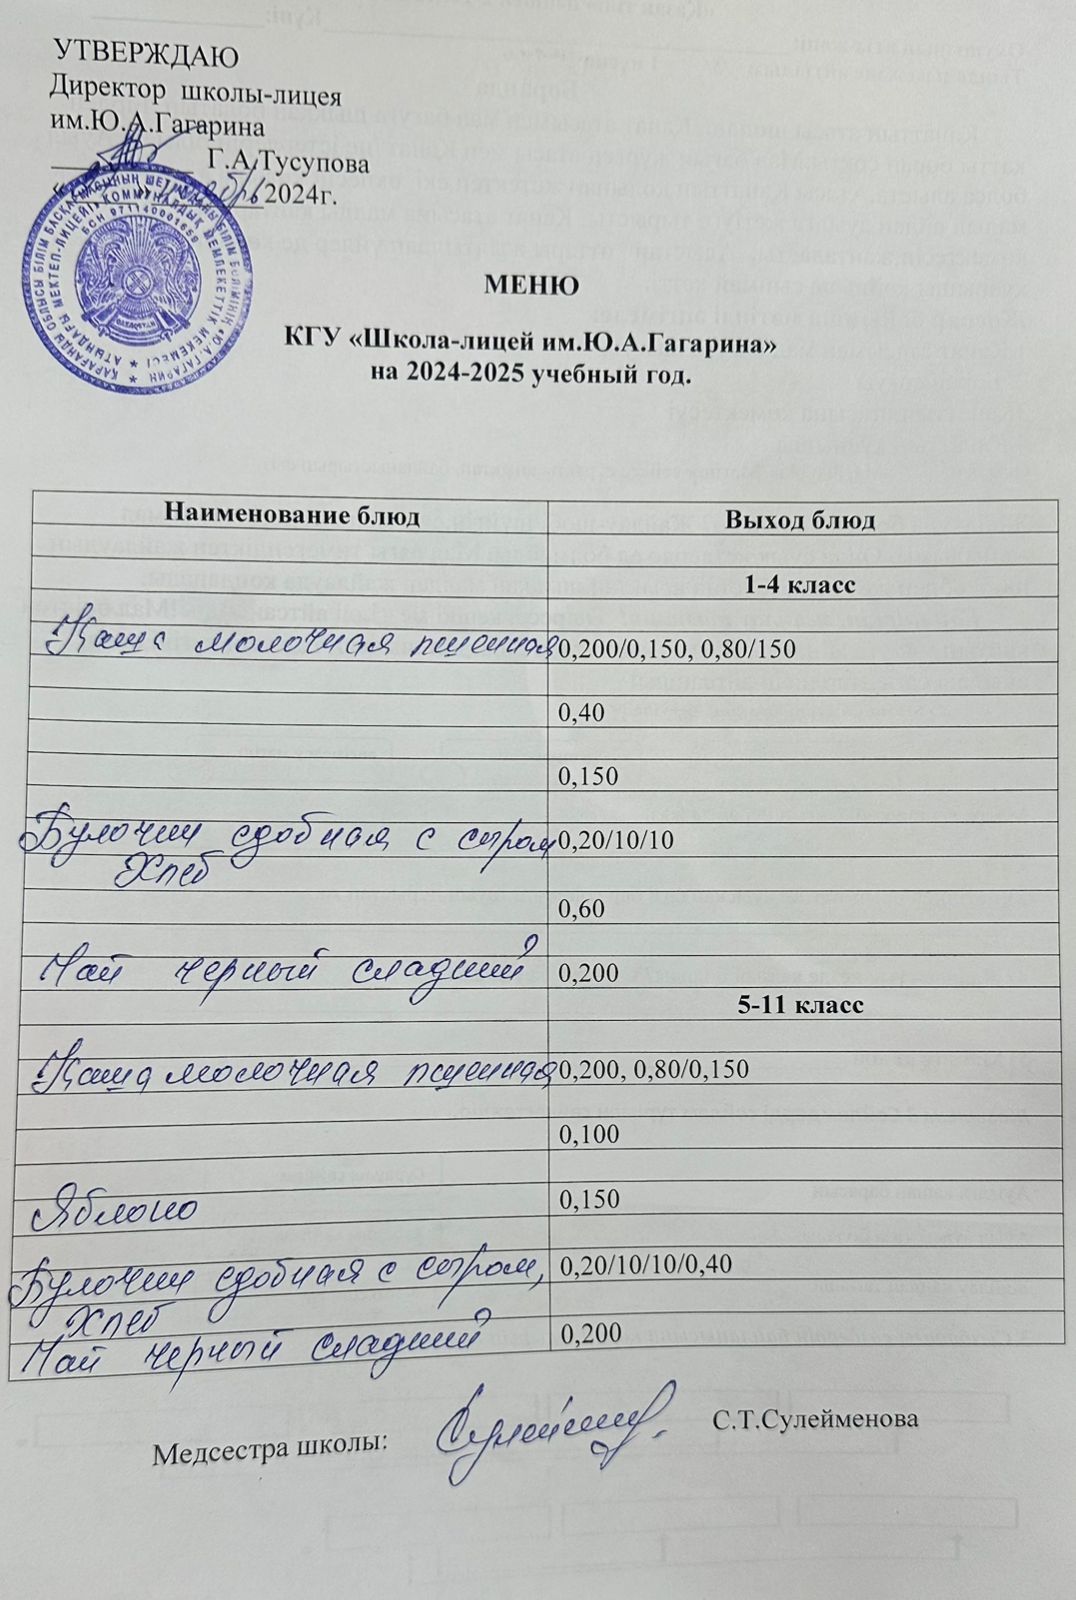 УТВЕРЖДАЮ
Директор школы-лицея
им.Ю.А.Гагарина
Г.А.Тусупова
2024г.
МЕНЮ
КГУ «Школа-лицей им.Ю.А.Гагарина»
на 2024-2025 учебный год.
Наименование блюд Выход блюд
1-4 класс
Каша молочная пшенная 0,200/0,150, 0,80/150
0,40
0,150
Булочки сдобная с сыром 0,20/10/10
Хлеб
0,60
Чай черный сладкий 0,200
5-11 класс
Каша молочная пшенная 0,200, 0,80/0,150
0,100
Яблоко 0,150
Булочки сдобная с сыром, 0,20/10/10/0,40
Хлеб
Чай черный сладкий 0,200
Медсестра школы: С.Т.Сулейменова